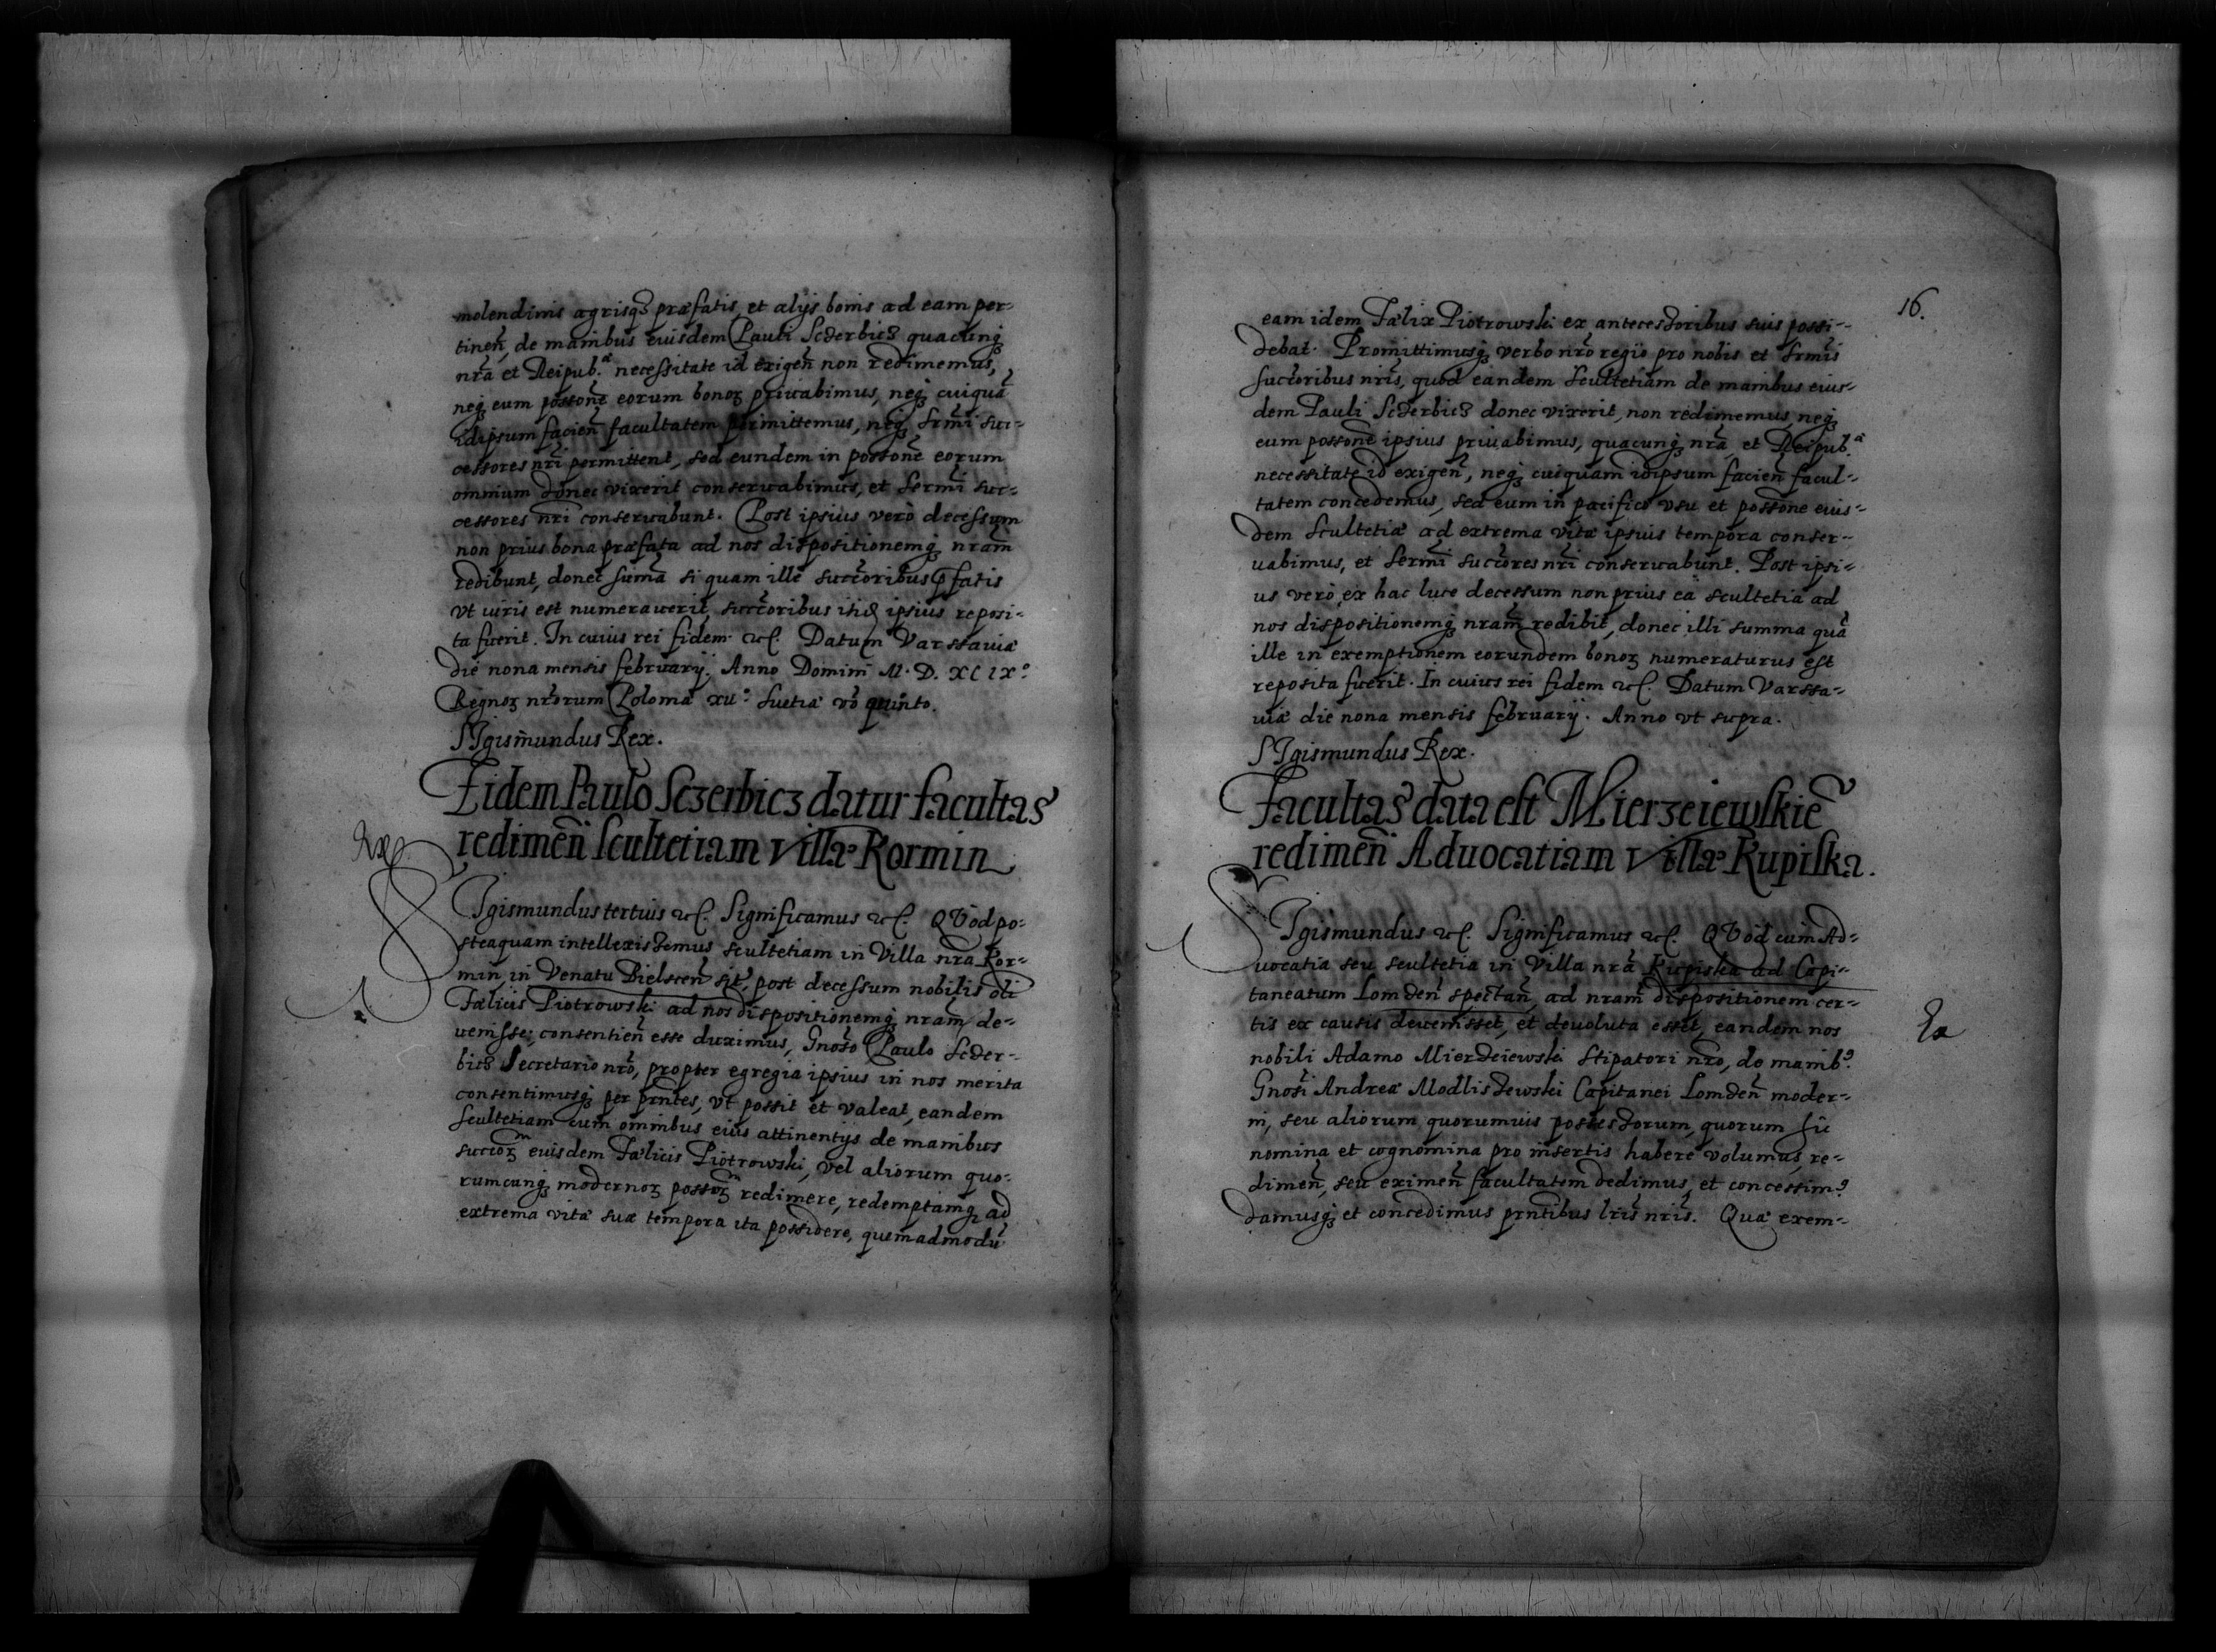 molendinis agrisq₃ præfatis, et alijs bonis ad eam per-
tineñ, de manibus eiusdem Pauli Sczerbicz quacunq₃
nrã et Reipub.ᵃᵉ necessitate id exigeñ non redimemus,
neq₃ eum possoñe eorum bonoꝝ priuabimus, neq₃ cuiquã
idipsum facieñ facultatem permittemus, neq₃ Srm̃i suc-
cessores nr̃i permittent, sed eundem in possoñe eorum
omnium donec vixerit conseruabimus, et Serm̃i suc-
cessores nr̃i conseruabunt. Post ipsius verò decessum
non prius bona præfata ad nos dispositionemq₃ nram̃
redibunt, donec sum̃a si quam ille succ̃oribus p̃fatis
vt iuris est numerauerit, succ̃oribus ipsius reposi-
ta fuerit. In cuius rei fidem etc. Datum Varssauiæ
die nona mensis february. Anno Domini M. D. XCIX°.
Regnoꝝ nr̃orum Poloniæ xii° Suetiæ vò quinto.
SIgismundus Rex.
Eidem Paulo Sczerbicz datur facultas
redimeñ scultetiam villæ Kormin
Ex.
SIgismundus tertius etc. Significamus etc. QVod po-
steaquam intellexissemus scultetiam in Villa nrã Kor-
min, in Venatu Bielsceñ sit, post decessum nobilis oli
Fælicis Piotrowski ad nos dispositionemq₃ nram̃ de-
uenisse; consentieñ esse duximus, Gnoso Paulo Sczer-
bicz Secretario nrõ, propter egregia ipsius in nos merita
consentimusq₃ per pñtes, vt possit et valeat, eandem
scultetiam cum omnibus eius attinentijs de manibus
succoꝝ eiusdem Fælicis Piotrowski, vel aliorum quo-
rumcunq₃ modernoꝝ possoꝝ redimere, redemptamq₃ ad
extrema vitæ suæ tempora ita possidere, quemadmodũ
16.
eam idem Fælix Piotrowski ex antecessoribus suis possi-
debat. Promittimusq₃ verbo nrõ regio pro nobis et Srm̃is
succ̃oribus nr̃is, quod eandem scultetiam de manibus eius-
dem Pauli Sczerbicz donec vixerit, non redimemus, neq₃
eum possoñe ipsius priuabimus, quacunq₃ nrã, et Reipub.ᵃᵉ
necessitate id exigeñ, neq₃ cuiquam idipsum facieñ facul-
tatem concedemus, sed eum in pacifico vsu et possoñe eius-
dem scultetiæ ad extrema vitæ ipsius tempora conser-
uabimus, et Serm̃i succ̃ores nr̃i conseruabunt. Post ipsi-
us verò ex hac luce decessum non prius ea scultetia ad
nos dispositionemq₃ nram̃ redibit, donec illi summa quã
ille in exemptionem eorundem bonoꝝ numeraturus est
reposita fuerit. In cuius rei fidem etc. Datum Varssa-
uiæ die nona mensis february. Anno vt supra.
SIgismundus Rex.
Facultas data est Mierzeiewskie
redimeñ Aduocatiam villæ Kupiska.
SIgismundus etc. Significamus etc. QVod cum Ad-
uocatia seu scultetia in Villa nrã Kupiska ad Capi-
taneatum Lomzeñ spectañ, ad nram̃ dispositionem cer-
tis ex causis deuenisset, et deuoluta esset, eandem nos
Ex
nobili Adamo Mierzeiewski stipatori nrõ, de manibꝰ
Gnosi Andreæ Modliszewski Capitanei Lomzeñ moder-
ni, seu aliorum quorumuis possessorum, quorum hic
nomina et cognomina pro insertis habere volumus, re-
dimeñ, seu eximeñ facultatem dedimus, et concessimꝰ
damusq₃ et concedimus pñtibus lris̃ nr̃is. Quæ exem-